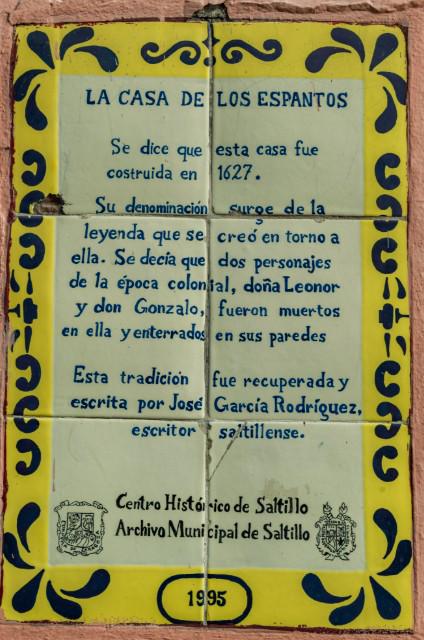 LA CASA DE LOS ESPANTOS
Se dice que esta casa fue
costruida en 1627.
Su denominación surge de la
leyenda que se creó en torno a
ella. Se decía que dos personajes
de la época colonial, doña Leonor
y don Gonzalo, fueron muertos
en ella y enterrados en sus paredes
Esta tradición fue recuperada y
escrita por José García Rodríguez,
escritor saltillense.
Centro Histórico de Saltillo
Archivo Municipal de Saltillo
1995